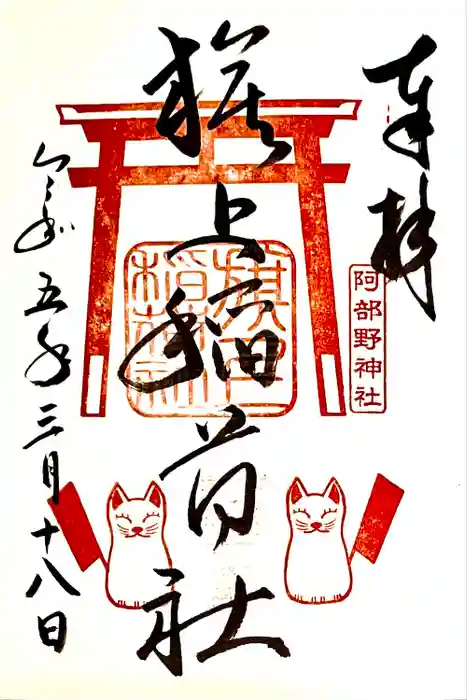 奉拝
阿部野神社
旗上稲荷社
旗上
稲荷社
令和五年三月十八日